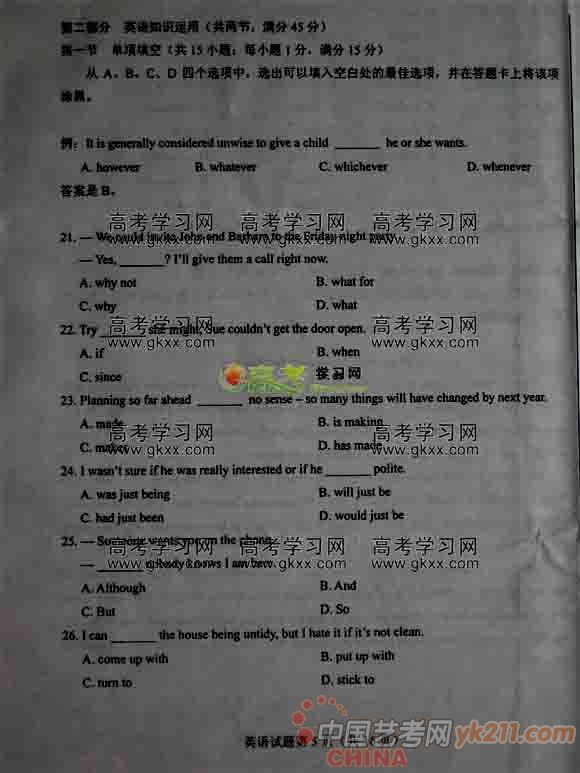 第二部分 英语知识运用（共两节，满分 45 分）
第一节 单项填空（共 15 小题；每小题 1 分，满分 15 分）
从 A、B、C、D 四个选项中，选出可以填入空白处的最佳选项，并在答题卡上将该项
涂黑。
例：It is generally considered unwise to give a child ______ he or she wants.
A. however B. whatever C. whichever D. whenever
答案是 B。
高考学习网 高考学习网
21. — We could invite John and Barbara to the Friday night party.
www.gkxx.com www.gkxx.com
— Yes, ______? I'll give them a call right now.
A. why not B. what for
C. why D. what
高考学习网 高考学习网
22. Try ______ she might, Sue couldn't get the door open.
www.gkxx.com www.gkxx.com
A. if B. when
C. since
高考 学习网
23. Planning so far ahead ______ no sense – so many things will have changed by next year.
A. made B. is making
高考学习网 高考学习网
C. makes D. has made
www.gkxx.com www.gkxx.com
24. I wasn't sure if he was really interested or if he ______ polite.
A. was just being B. will just be
C. had just been D. would just be
25. — Someone wants you on the phone.
高考学习网 高考学习网 高考学习网
— ______ nobody knows I am here.
www.gkxx.com www.gkxx.com www.gkxx.com
A. Although B. And
C. But D. So
26. I can ______ the house being untidy, but I hate it if it's not clean.
A. come up with B. put up with
高考学习网 高考学习网
C. turn to D. stick to
www.gkxx.com www.gkxx.com
英语试题第 5 页
中国艺考网 yk211.com
CHINA